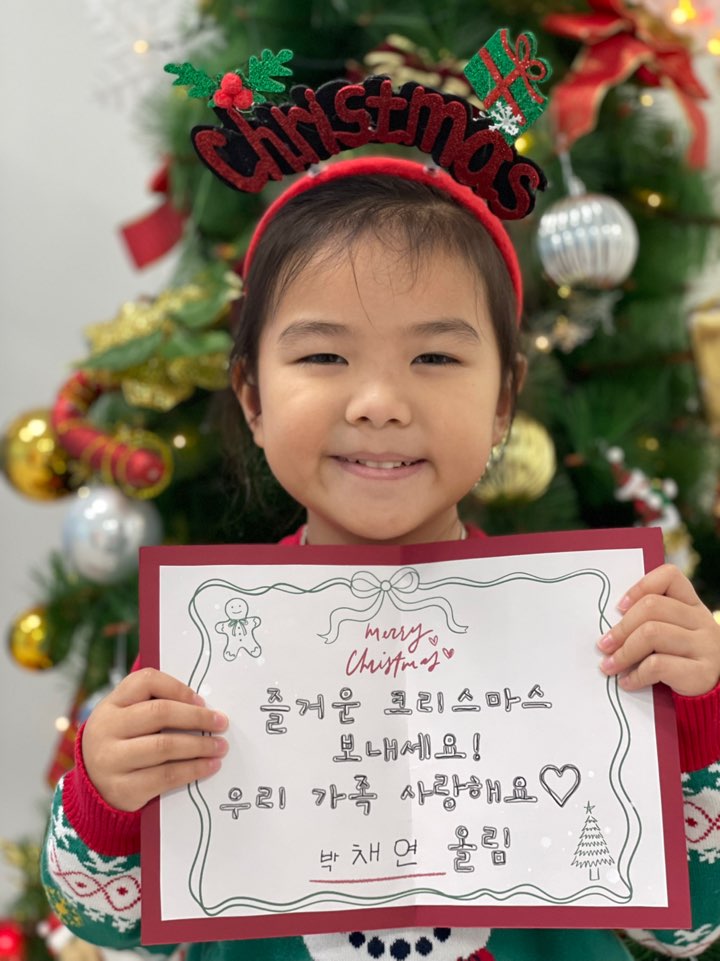 Christmas
merry
Christmas
즐거운 크리스마스
보내세요!
우리 가족 사랑해요♡
박채연 올림